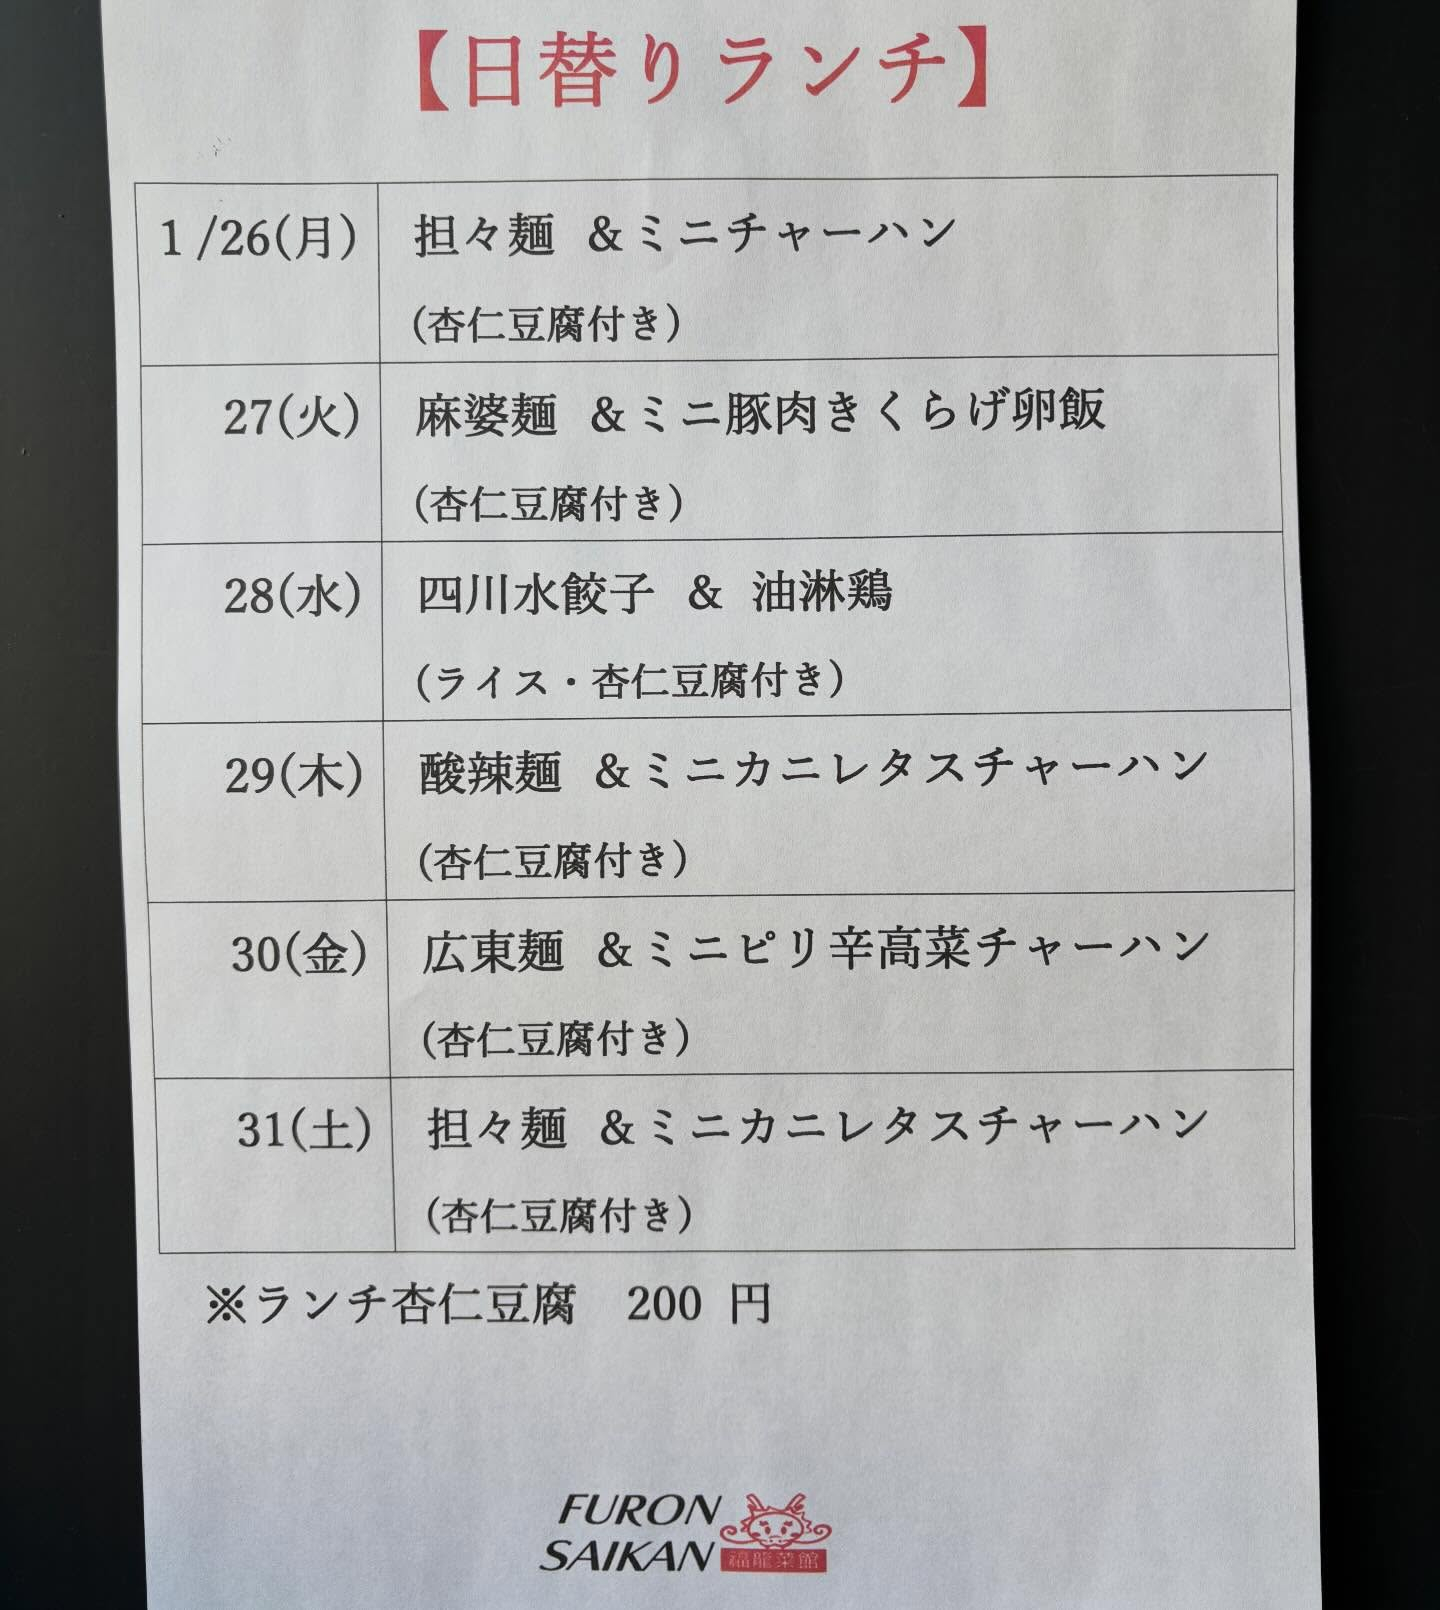 【日替りランチ】
1/26(月) 担々麺 &ミニチャーハン
(杏仁豆腐付き)
27(火) 麻婆麺 &ミニ豚肉きくらげ卵飯
(杏仁豆腐付き)
28(水) 四川水餃子 & 油淋鶏
(ライス・杏仁豆腐付き)
29(木) 酸辣麺 &ミニカニレタスチャーハン
(杏仁豆腐付き)
30(金) 広東麺 &ミニピリ辛高菜チャーハン
(杏仁豆腐付き)
31(土) 担々麺 &ミニカニレタスチャーハン
(杏仁豆腐付き)
※ランチ杏仁豆腐 200 円
FURON
SAIKAN
福龍菜館